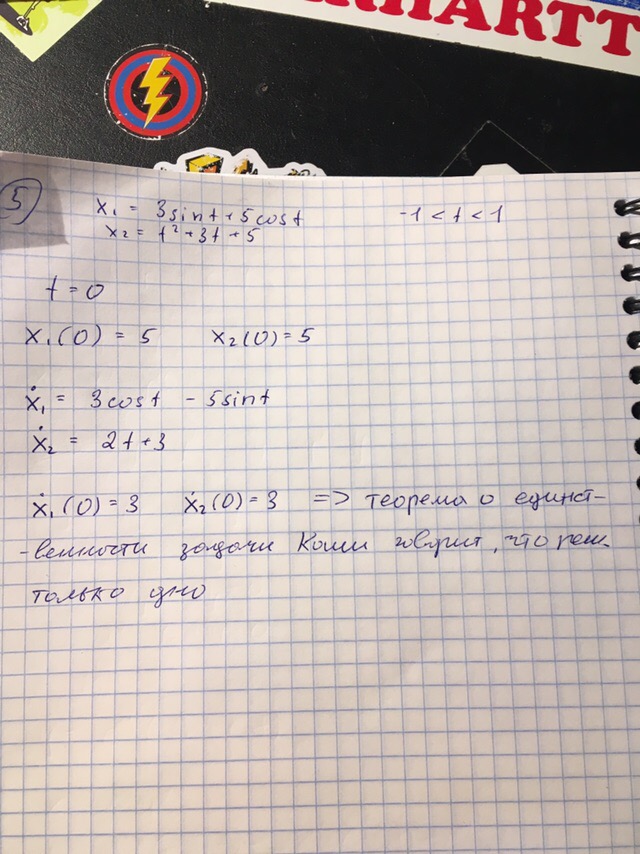 ERHARTT
5
x₁ = 3sint + 5cost -1 < t < 1
x₂ = t² + 3t + 5
t = 0
x₁(0) = 5 x₂(0) = 5
ẋ₁ = 3cost - 5sint
ẋ₂ = 2t + 3
ẋ₁(0) = 3 ẋ₂(0) = 3 => теорема о единст-
-венности задачи Коши говорит, что реш.
только одно